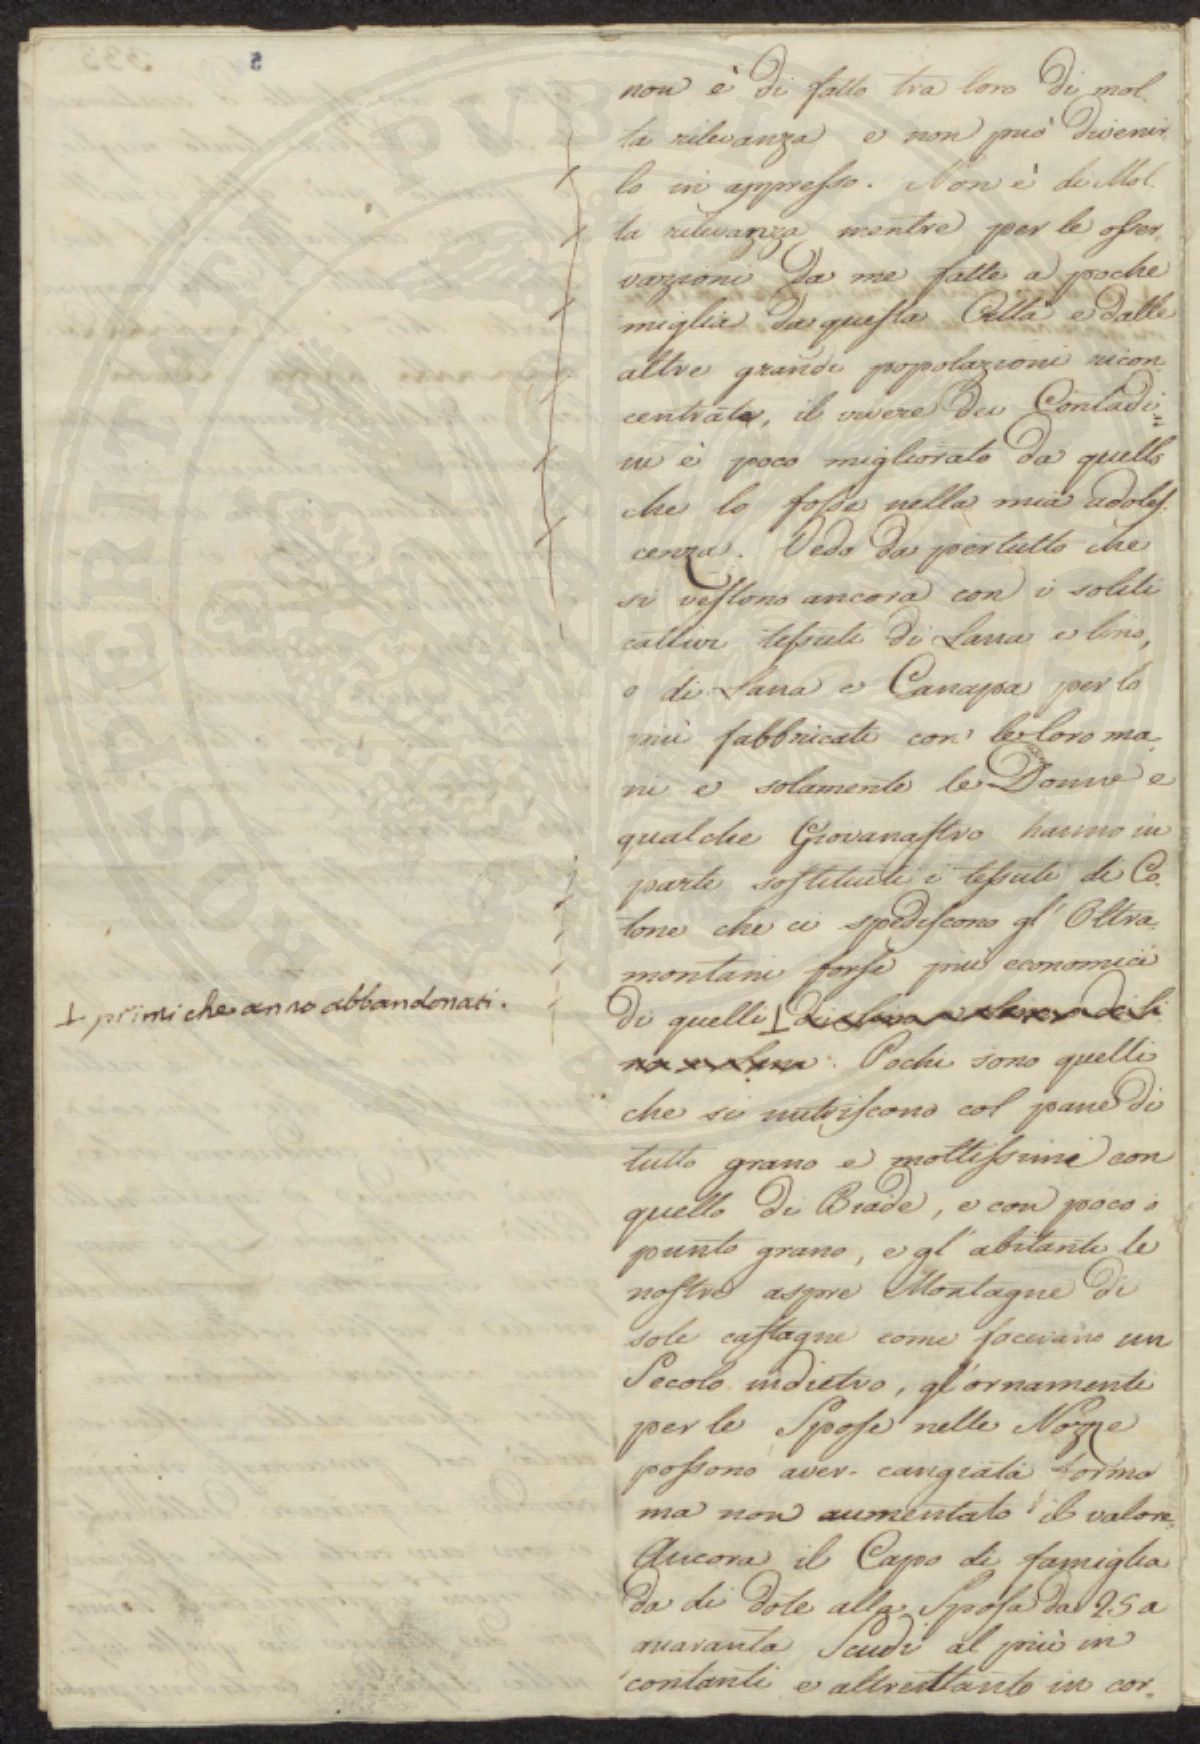 non è di fatto tra loro di mol
ta rilevanza e non può divenir
lo in appresso. Non è di Mol
ta rilevanza mentre per le osser
vazioni da me fatte a poche
miglia da questa Città e dalle
altre grandi popolazioni ricon
centrate, il vivere dei Contadi=
ni è poco migliorato da quello
che lo fosse nella mia adoles
cenza. Vedo da pertutto che
si vestono ancora con i soliti
cattivi tessuti di Lana e lino,
o di Lana e Canapa per lo
più fabbricati con le loro ma
ni e solamente le Donne e
qualche Giovanastro hanno in
parte sostituiti i tessuti di Co
tone che ci spediscono gl' Oltra
montani forse più economici
di quelli ⊥
⊥ primi che anno abbandonati.
Pochi sono quelli
che si nutriscono col pane di
tutto grano e moltissimi con
quello di Biade, e con poco o
punto grano, e gl' abitanti le
nostre aspre Montagne di
sole castagne come facevano un
Secolo indietro, gl' ornamenti
per le Spose nelle Nozze
possono aver cangiata forma
ma non aumentato il valore.
Ancora il Capo di famiglia
da di dote alla Sposa da 25 a
quaranta Scudi al più in
contanti e altrettanto in cor